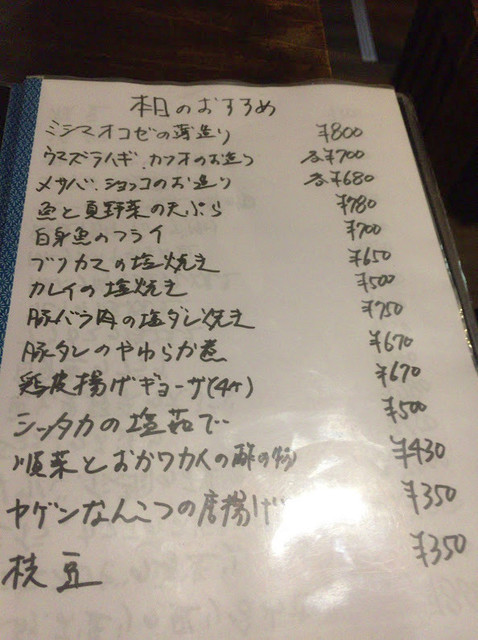 本日のおすすめ
ミシマオコゼの薄造り ¥800
ウマズラハギ、カツオのお造り 各¥700
メサバ、ショッコのお造り 各¥680
魚と夏野菜の天ぷら ¥780
白身魚のフライ ¥700
ブリカマの塩焼き ¥650
カレイの塩焼き ¥500
豚バラ肉の塩ダレ焼き ¥750
豚タレのやわらか煮 ¥670
鶏皮揚げギョーザ(4ヶ) ¥670
シッタカの塩茹で ¥500
順菜とおかワカメの酢の物 ¥430
ヤゲンなんこつの唐揚げ ¥350
枝豆 ¥350